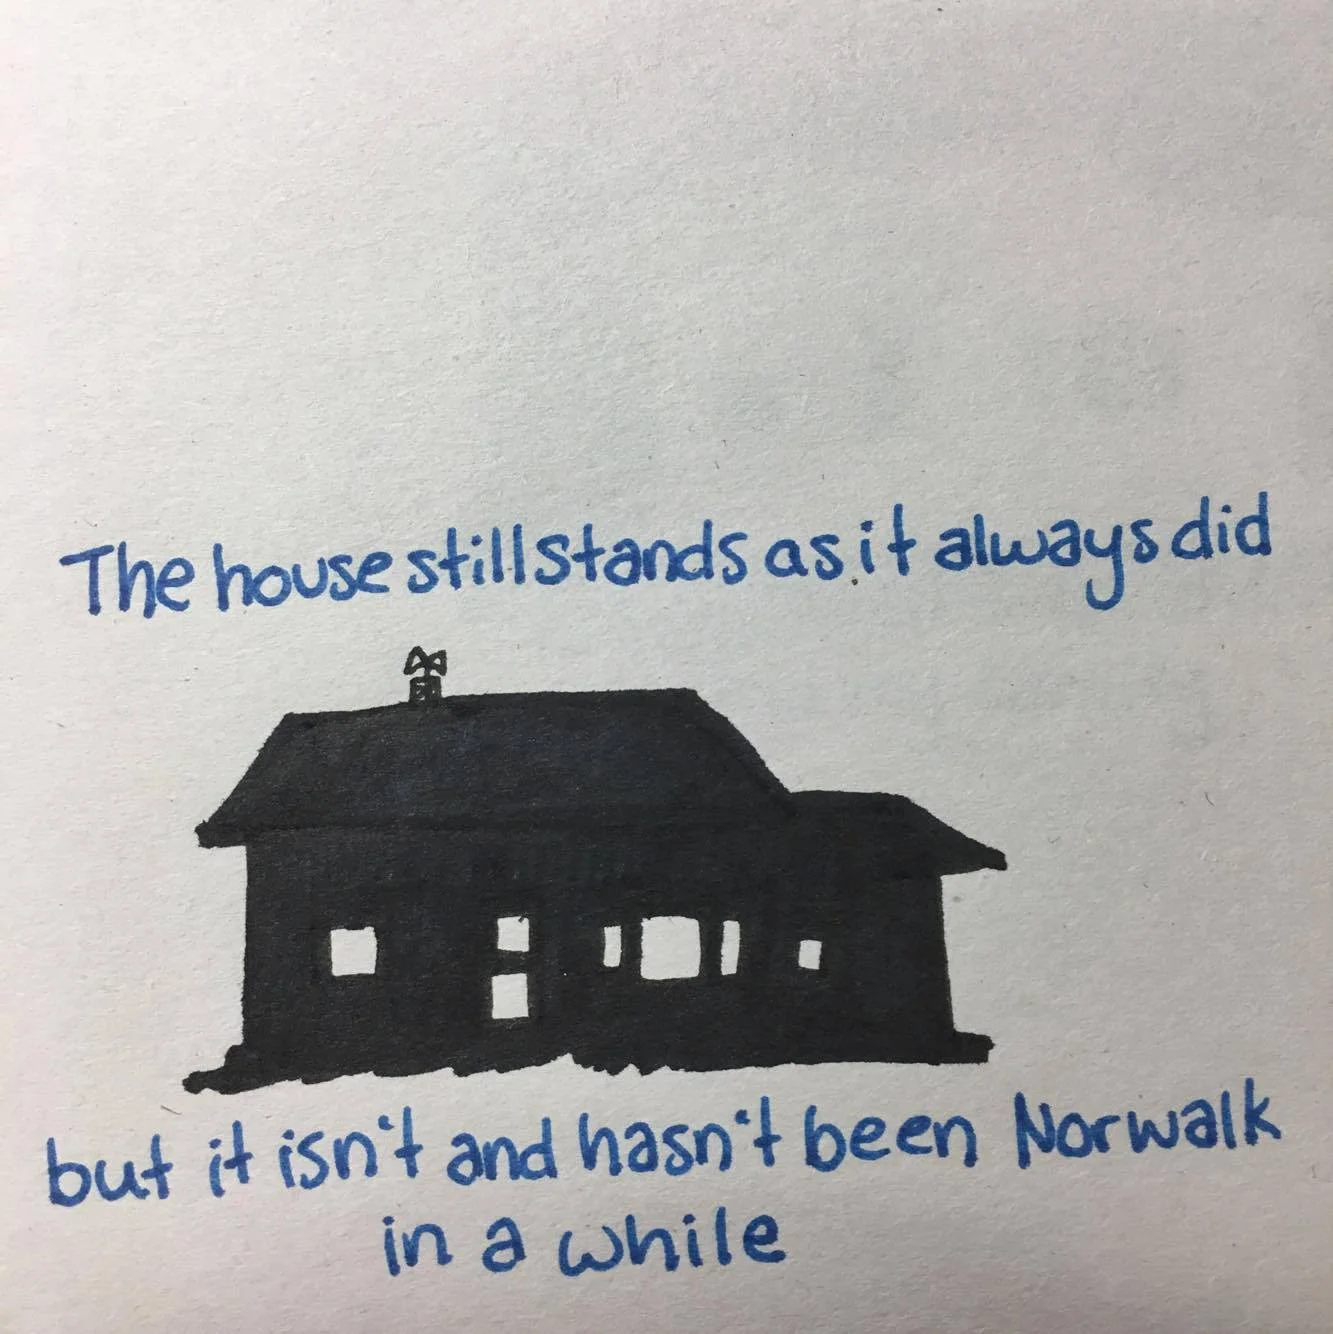 The house still stands as it always did
but it isn't and hasn't been Norwalk
in a while